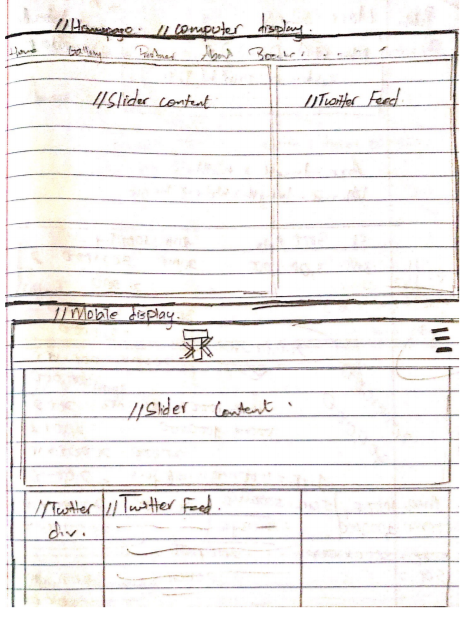 //Homepage. // computer display.
Home Gallery Partner About
//Slider content //Twitter Feed
//Mobile display.
//Slider Content.
//Twitter //Twitter Feed.
div.